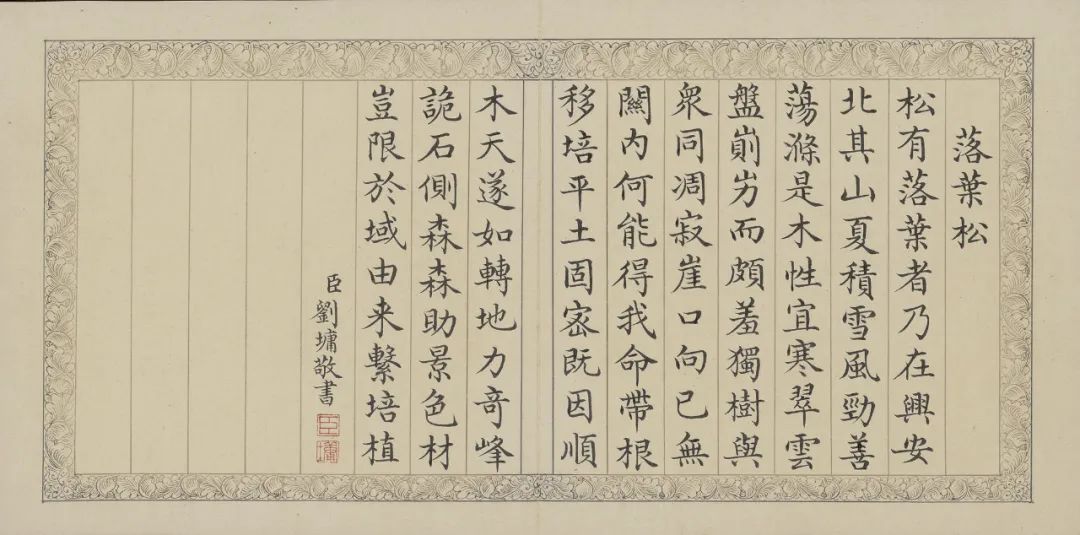 落葉松
松有落葉者乃在興安
北其山夏積雪風勁善
蕩滌是木性宜寒翠雲
盤崱屴而頗羞獨樹與
衆同凋寂崖口向已無
關内何能得我命帶根
移培平土固密既因順
木天遂如轉地力奇峰
詭石側森森助景色材
豈限於域由来繫培植
臣劉墉敬書
臣
墉